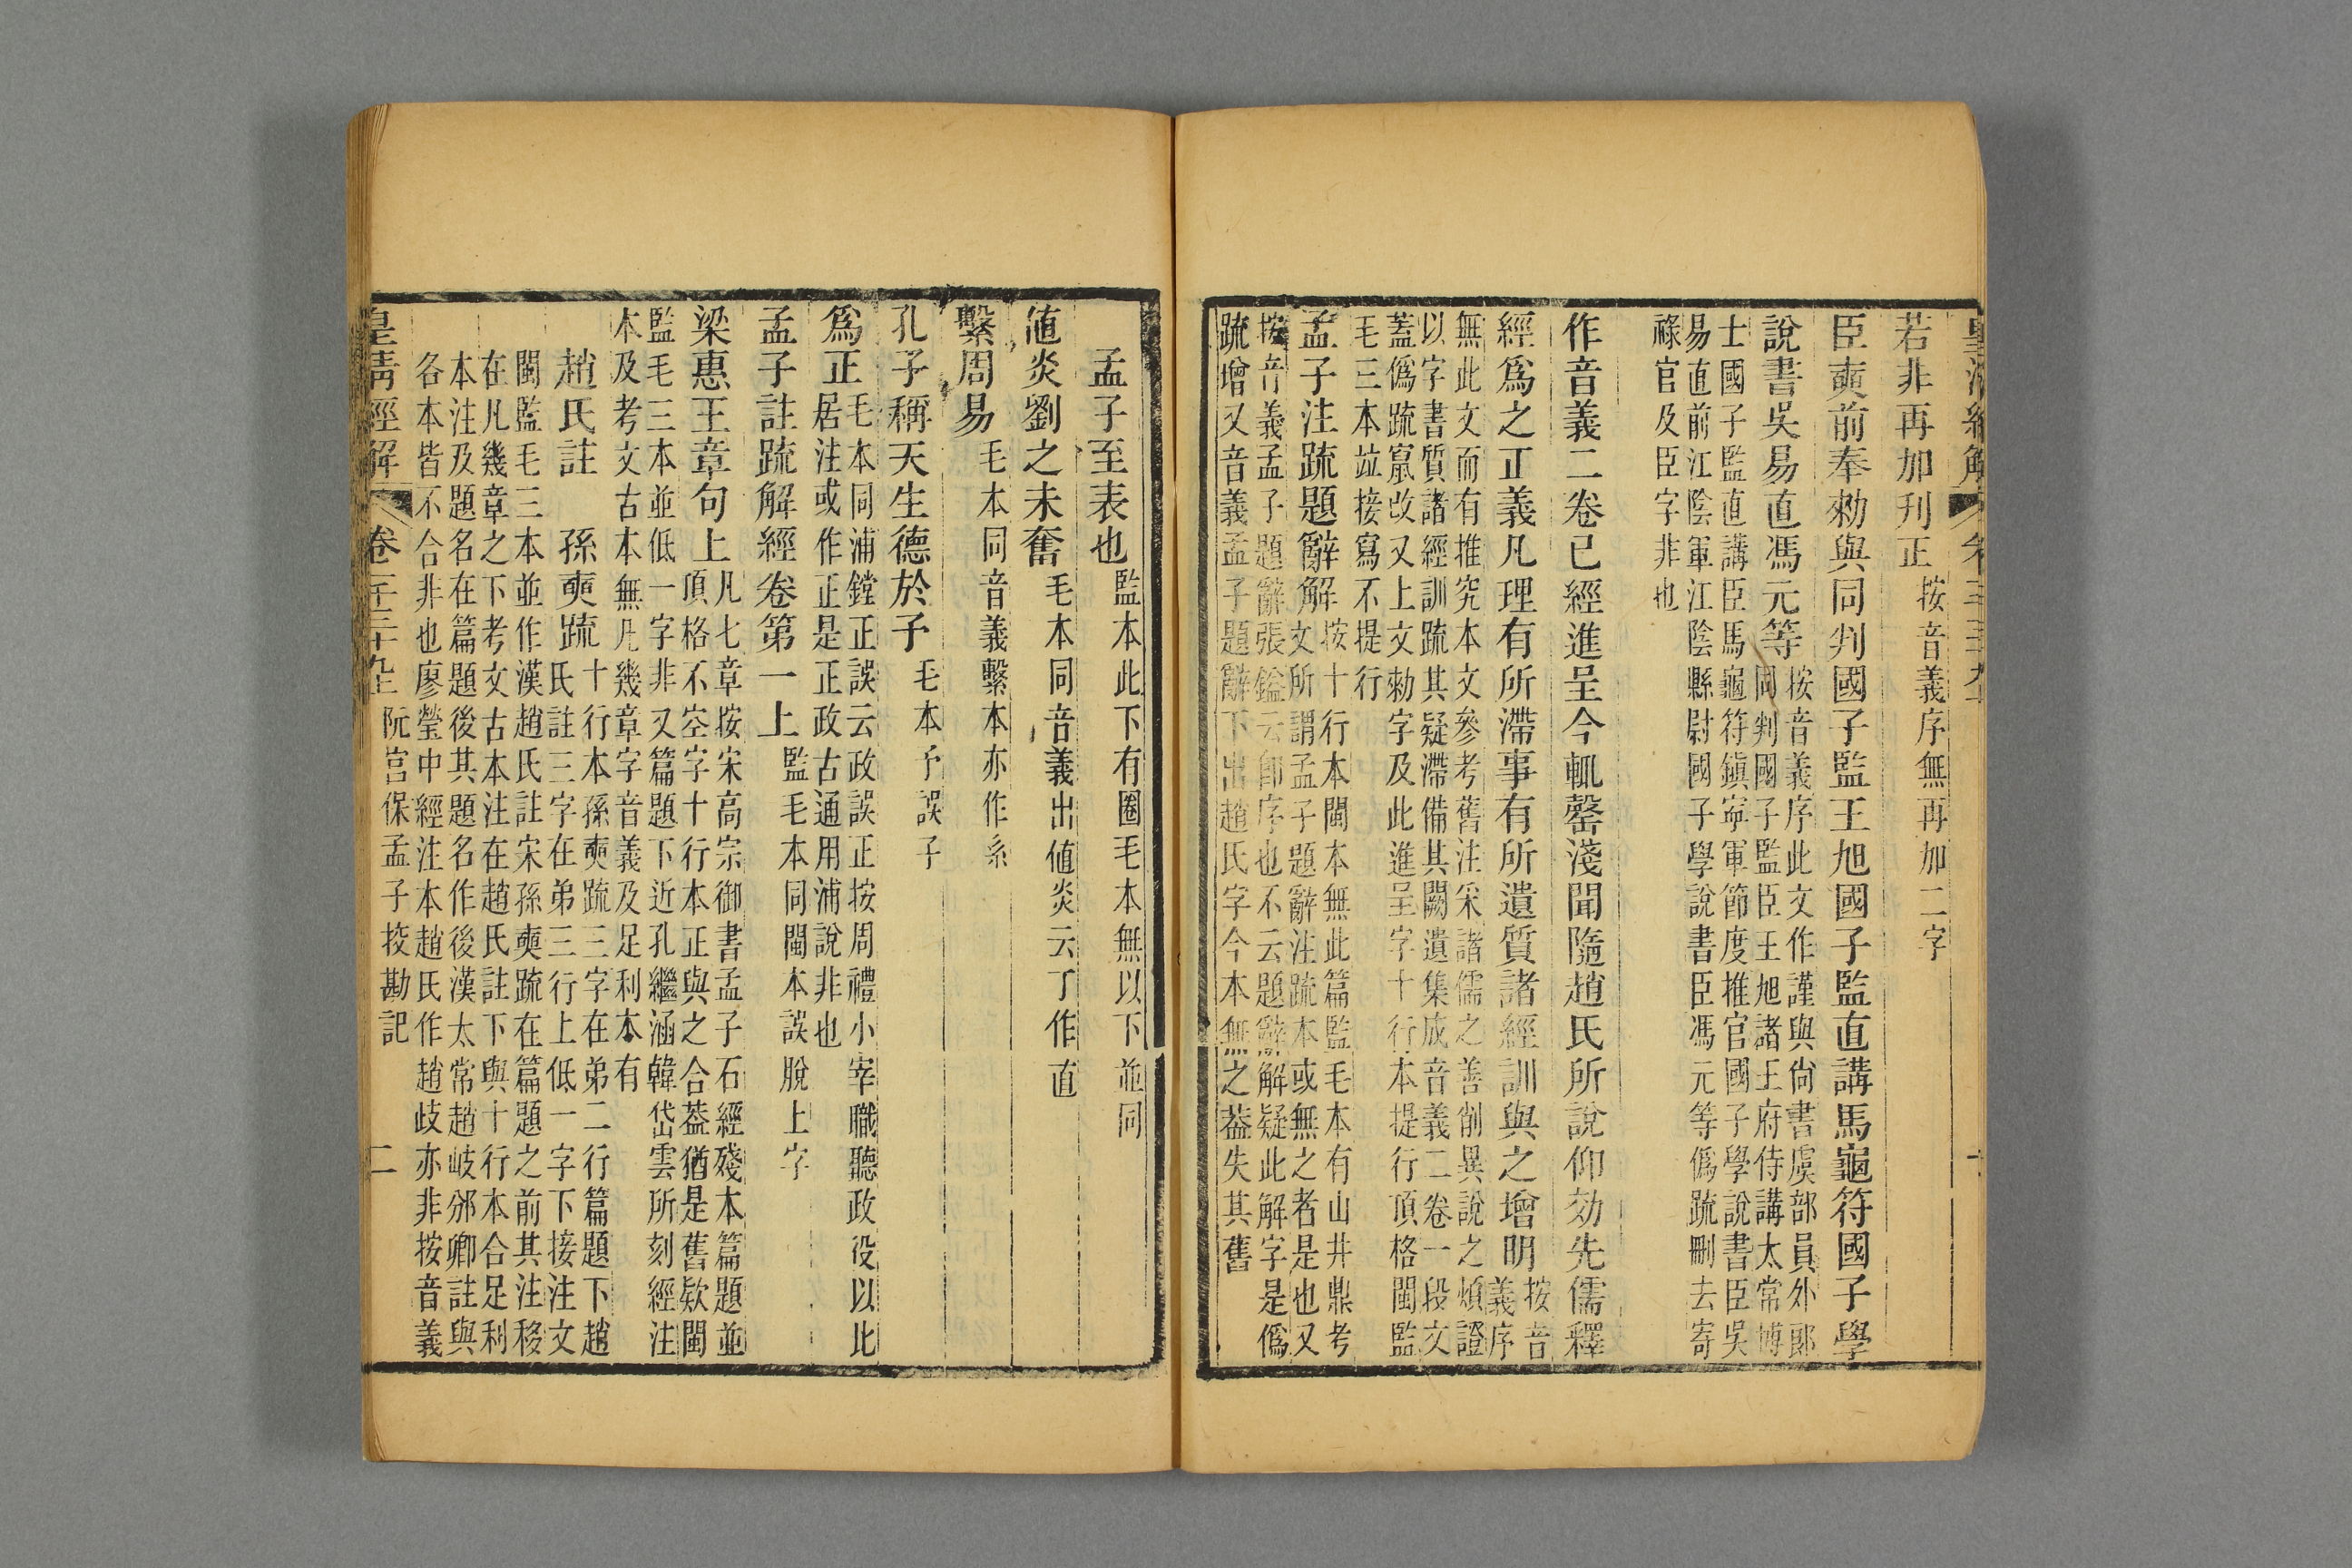 若非再加刋正按音義序無再加二字
臣奭前奉勑與同判國子監王旭國子監直講馬龜符國子學
說書吳易直馮元等按音義序此文作謹與尙書虞部員外郞
同判國子監臣王旭諸王府侍講太常博
士國子監直講臣馬龜符鎮寧軍節度推官國子學說書臣吳
易直前江陰軍江陰縣尉國子學說書臣馮元等僞疏刪去寄
祿官及臣字非也
作音義二卷已經進呈今輒罄淺聞隨趙氏所說仰効先儒釋
經爲之正義凡理有所滯事有所遺質諸經訓與之增明按音
義序
無此文而有推究本文參考舊注采諸儒之善削異說之煩證
以字書質諸經訓疏其疑滯備其闕遺集成音義二卷一段文
蓋僞疏竄改又上文勑字及此進呈字十行本提行頂格閩監
毛三本竝接寫不提行
孟子注疏題辭解按十行本閩本無此篇監毛本有山井鼎考
文所謂孟子題辭注疏本或無之者是也又
按音義孟子題辭張鎰云卽序也不云題辭解疑此解字是僞
疏增又音義孟子題辭下出趙氏字今本無之葢失其舊
孟子至表也監本此下有圈毛本無以下竝同
値炎劉之未奮毛本同音義出値炎云了作直
繫周易毛本同音義繫本亦作系
孔子稱天生德於予毛本予誤子
爲正毛本同浦鏜正誤云政誤正按周禮小宰職聽政役以比
居注或作正是正政古通用浦說非也
孟子註疏解經卷第一上監毛本同閩本誤脫上字
梁惠王章句上凡七章按宋高宗御書孟子石經殘本篇題並
頂格不空字十行本正與之合葢猶是舊欵閩
監毛三本並低一字非又篇題下近孔繼涵韓岱雲所刻經注
本及考文古本無凡幾章字音義及足利本有
趙氏註　孫奭疏十行本孫奭疏三字在弟二行篇題下趙
氏註三字在弟三行上低一字下接注文
閩監毛三本並作漢趙氏註宋孫奭疏在篇題之前其注移
在凡幾章之下考文古本注在趙氏註下與十行本合足利
本注及題名在篇題後其題名作後漢太常趙岐邠卿註與
各本皆不合非也廖瑩中經注本趙氏作趙歧亦非按音義
皇清經解　卷一千三十九　阮宮保孟子挍勘記　二